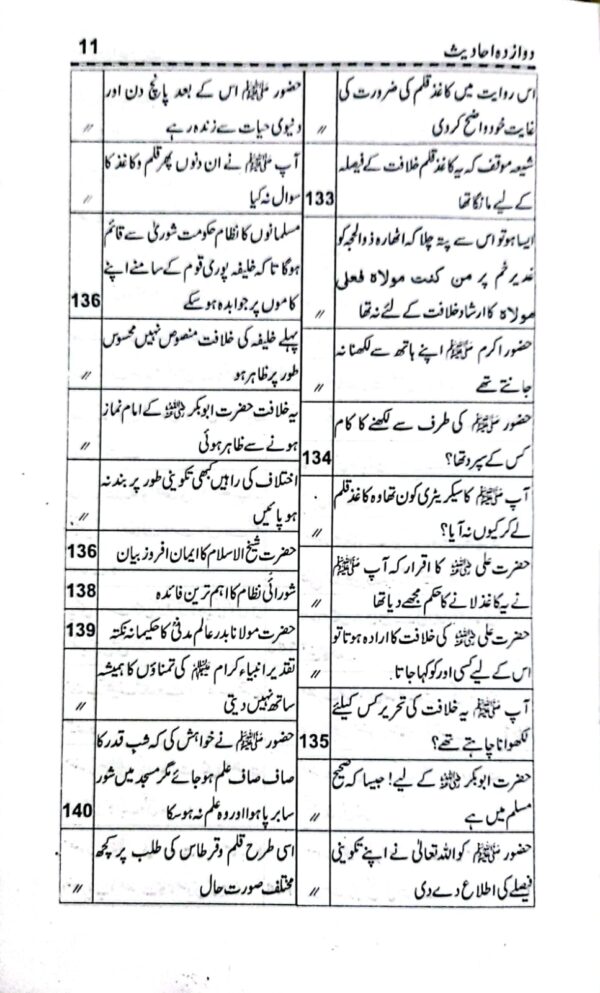 دوازدہ احادیث
11
اس روایت میں کاغذ قلم کی ضرورت کی
غایت خود واضح کردی
〃
شیعہ موقف کہ یہ کاغذ قلم خلافت کے فیصلہ
کے لیے مانگا تھا
133
ایسا ہو تو اس سے پتہ چلا کہ اٹھارہ ذوالحجہ کو
غدیر خم پر من کنت مولاہ فعلی
مولاہ کا ارشاد خلافت کے لئے نہ تھا
〃
حضور اکرم ﷺ اپنے ہاتھ سے لکھنا نہ
جانتے تھے
〃
حضور ﷺ کی طرف سے لکھنے کا کام
کس کے سپرد تھا؟
134
آپ ﷺ کا سیکریٹری کون تھا وہ کاغذ قلم
لے کر کیوں نہ آیا؟
〃
حضرت علی ؓ کا اقرار کہ آپ ﷺ
نے یہ کاغذ لانے کا حکم مجھے دیا تھا
〃
حضرت علی ؓ کی خلافت کا ارادہ ہوتا تو
اس کے لیے کسی اور کو کہا جاتا
〃
آپ ﷺ یہ خلافت کی تحریر کس کیلئے
لکھوانا چاہتے تھے؟
135
حضرت ابوبکر ؓ کے لیے! جیسا کہ صحیح
مسلم میں ہے
〃
حضور ﷺ کو اللہ تعالیٰ نے اپنے تکوینی
فیصلے کی اطلاع دے دی
〃
حضور ﷺ اس کے بعد پانچ دن اور
دنیوی حیات سے زندہ رہے
〃
آپ ﷺ نے ان دنوں پھر قلم و کاغذ کا
سوال نہ کیا
〃
مسلمانوں کا نظام حکومت شوریٰ سے قائم
ہوگا تاکہ خلیفہ پوری قوم کے سامنے اپنے
کاموں پر جوابدہ ہوسکے
136
پہلے خلیفہ کی خلافت منصوص نہیں محسوس
طور پر ظاہر ہو
〃
یہ خلافت حضرت ابوبکر ؓ کے امام نماز
ہونے سے ظاہر ہوئی
〃
اختلاف کی راہیں کبھی تکوینی طور پر بند نہ
ہو پائیں
〃
حضرت شیخ الاسلام کا ایمان افروز بیان
136
شورائی نظام کا اہم ترین فائدہ
138
حضرت مولانا بدر عالم مدنیؒ کا حکیمانہ نکتہ
139
تقدیر انبیاء کرام علیہم السلام کی تمناؤں کا ہمیشہ
ساتھ نہیں دیتی
〃
حضور ﷺ نے خواہش کی کہ شب قدر کا
صاف صاف علم ہو جائے مگر مسجد میں شور
سا برپا ہوا اور وہ علم نہ ہوسکا
140
اسی طرح قلم و قرطاس کی طلب پر کچھ
مختلف صورت حال
〃